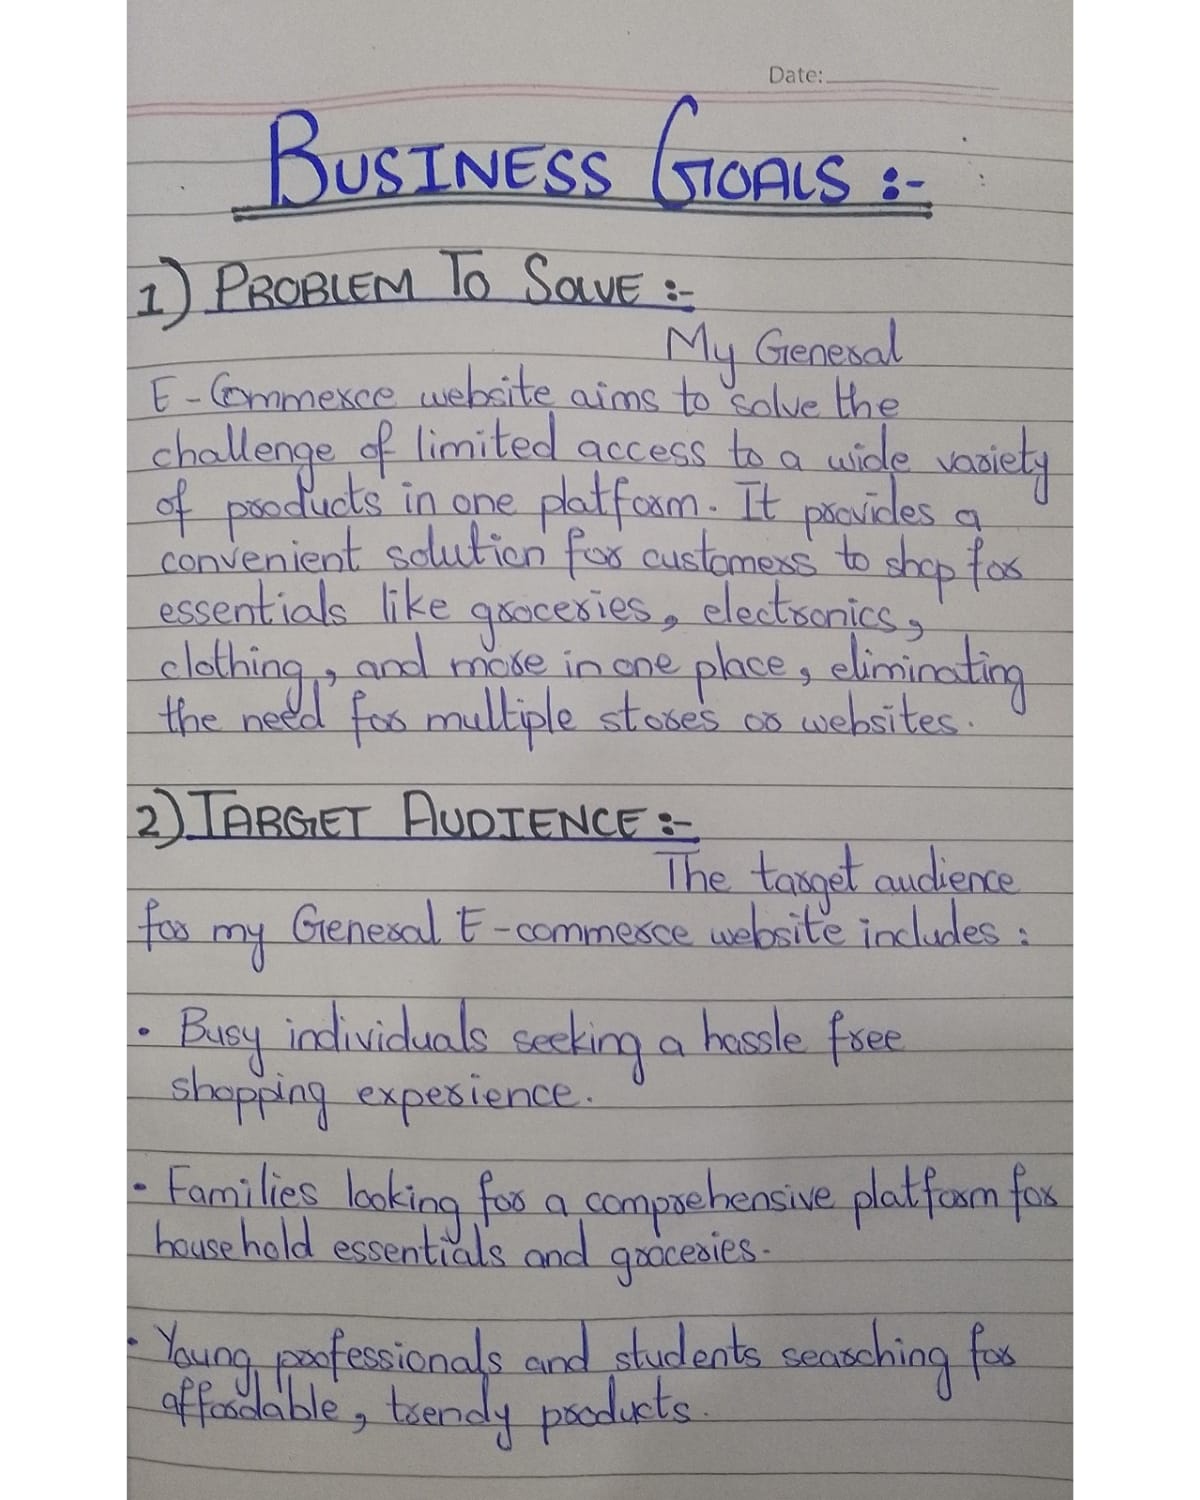 Date:
BUSINESS GOALS :-
1) PROBLEM TO SOLVE :-
My General
E-Commerce website aims to solve the
challenge of limited access to a wide variety
of products in one platform. It provides a
convenient solution for customers to shop for
essentials like groceries, electronics,
clothing, and more in one place, eliminating
the need for multiple stores or websites.
2) TARGET AUDIENCE :-
The target audience
for my General E-commerce website includes :
• Busy individuals seeking a hassle free
shopping experience.
• Families looking for a comprehensive platform for
household essentials and groceries.
• Young professionals and students searching for
affordable, trendy products.